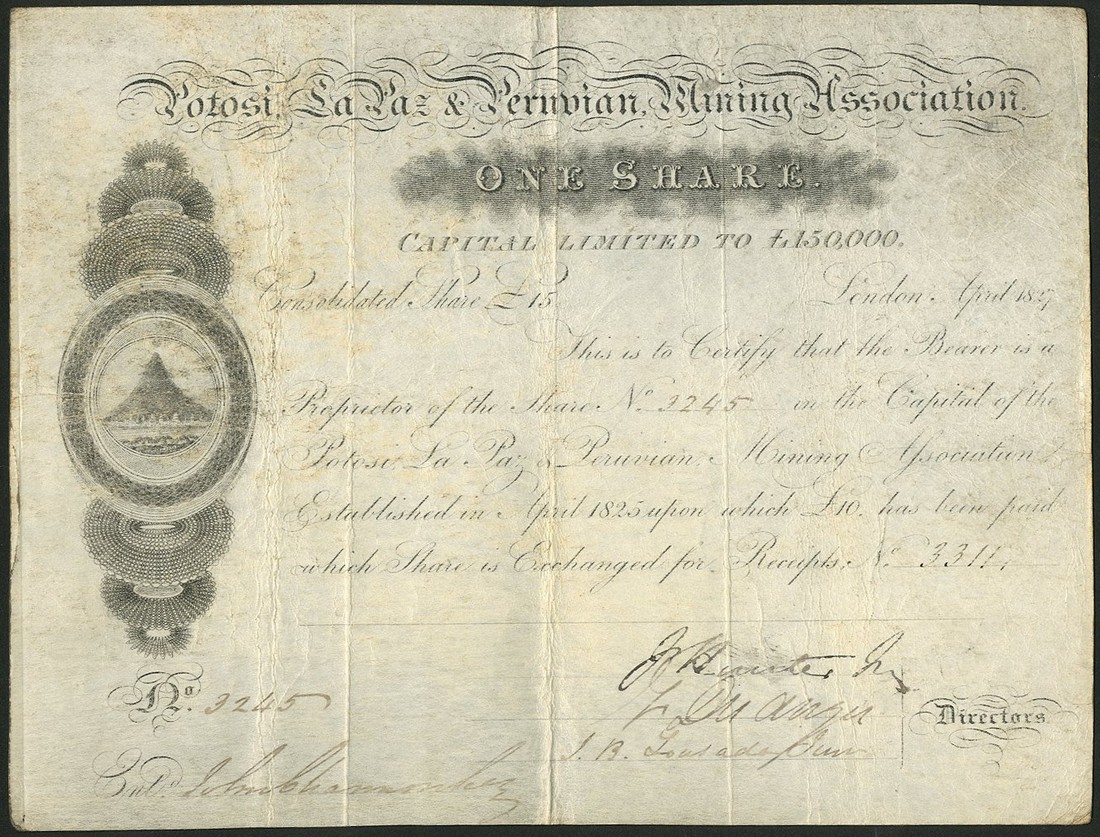 Potosi, La Paz & Peruvian, Mining Association.
ONE SHARE.
CAPITAL LIMITED TO £150,000.
Consolidated Share £15 London April 1827
This is to Certify that the Bearer is a
Proprietor of the Share No. 3245 in the Capital of the
Potosi, La Paz & Peruvian, Mining Association,
Established in April 1825 upon which £10, has been paid
which Share is Exchanged for Receipts, No. 3311,
No. 3245
Directors
J. B. Lousada Junr
Entd. John